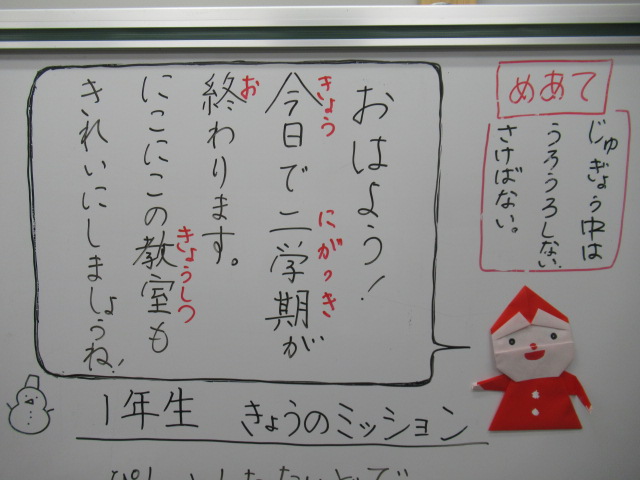 めあて
じゅぎょう中は
うろうろしない
さけばない。
おはよう!
今日で二学期が
きょう にがっき
終わります。
お
にこにこの教室も
きょうしつ
きれいにしましょうね!
1年生 きょうのミッション